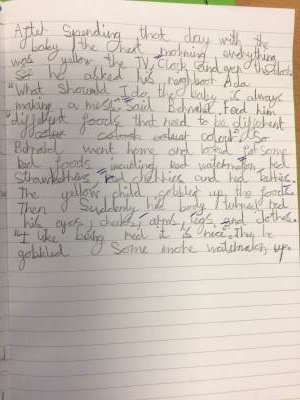 After Spending that day with the
baby the next morning everything
was yellow the TV, Clock and even the
So he asked his neighbour Ada
"What Shourld I do, the baby is always
making a mess." Said Bernald. Feed him
different foods that need to be different
colour" So
Bernald went home and for some
red foods incuding red watermelon red
Strawberries red cherries and red
The yellow child gobbled up the foods.
Then Suddenly his body turned red
his eyes, cheeks, arms, legs and clothes.
"I like being red it is nice". Then he
gobbled Some more watermelon up.